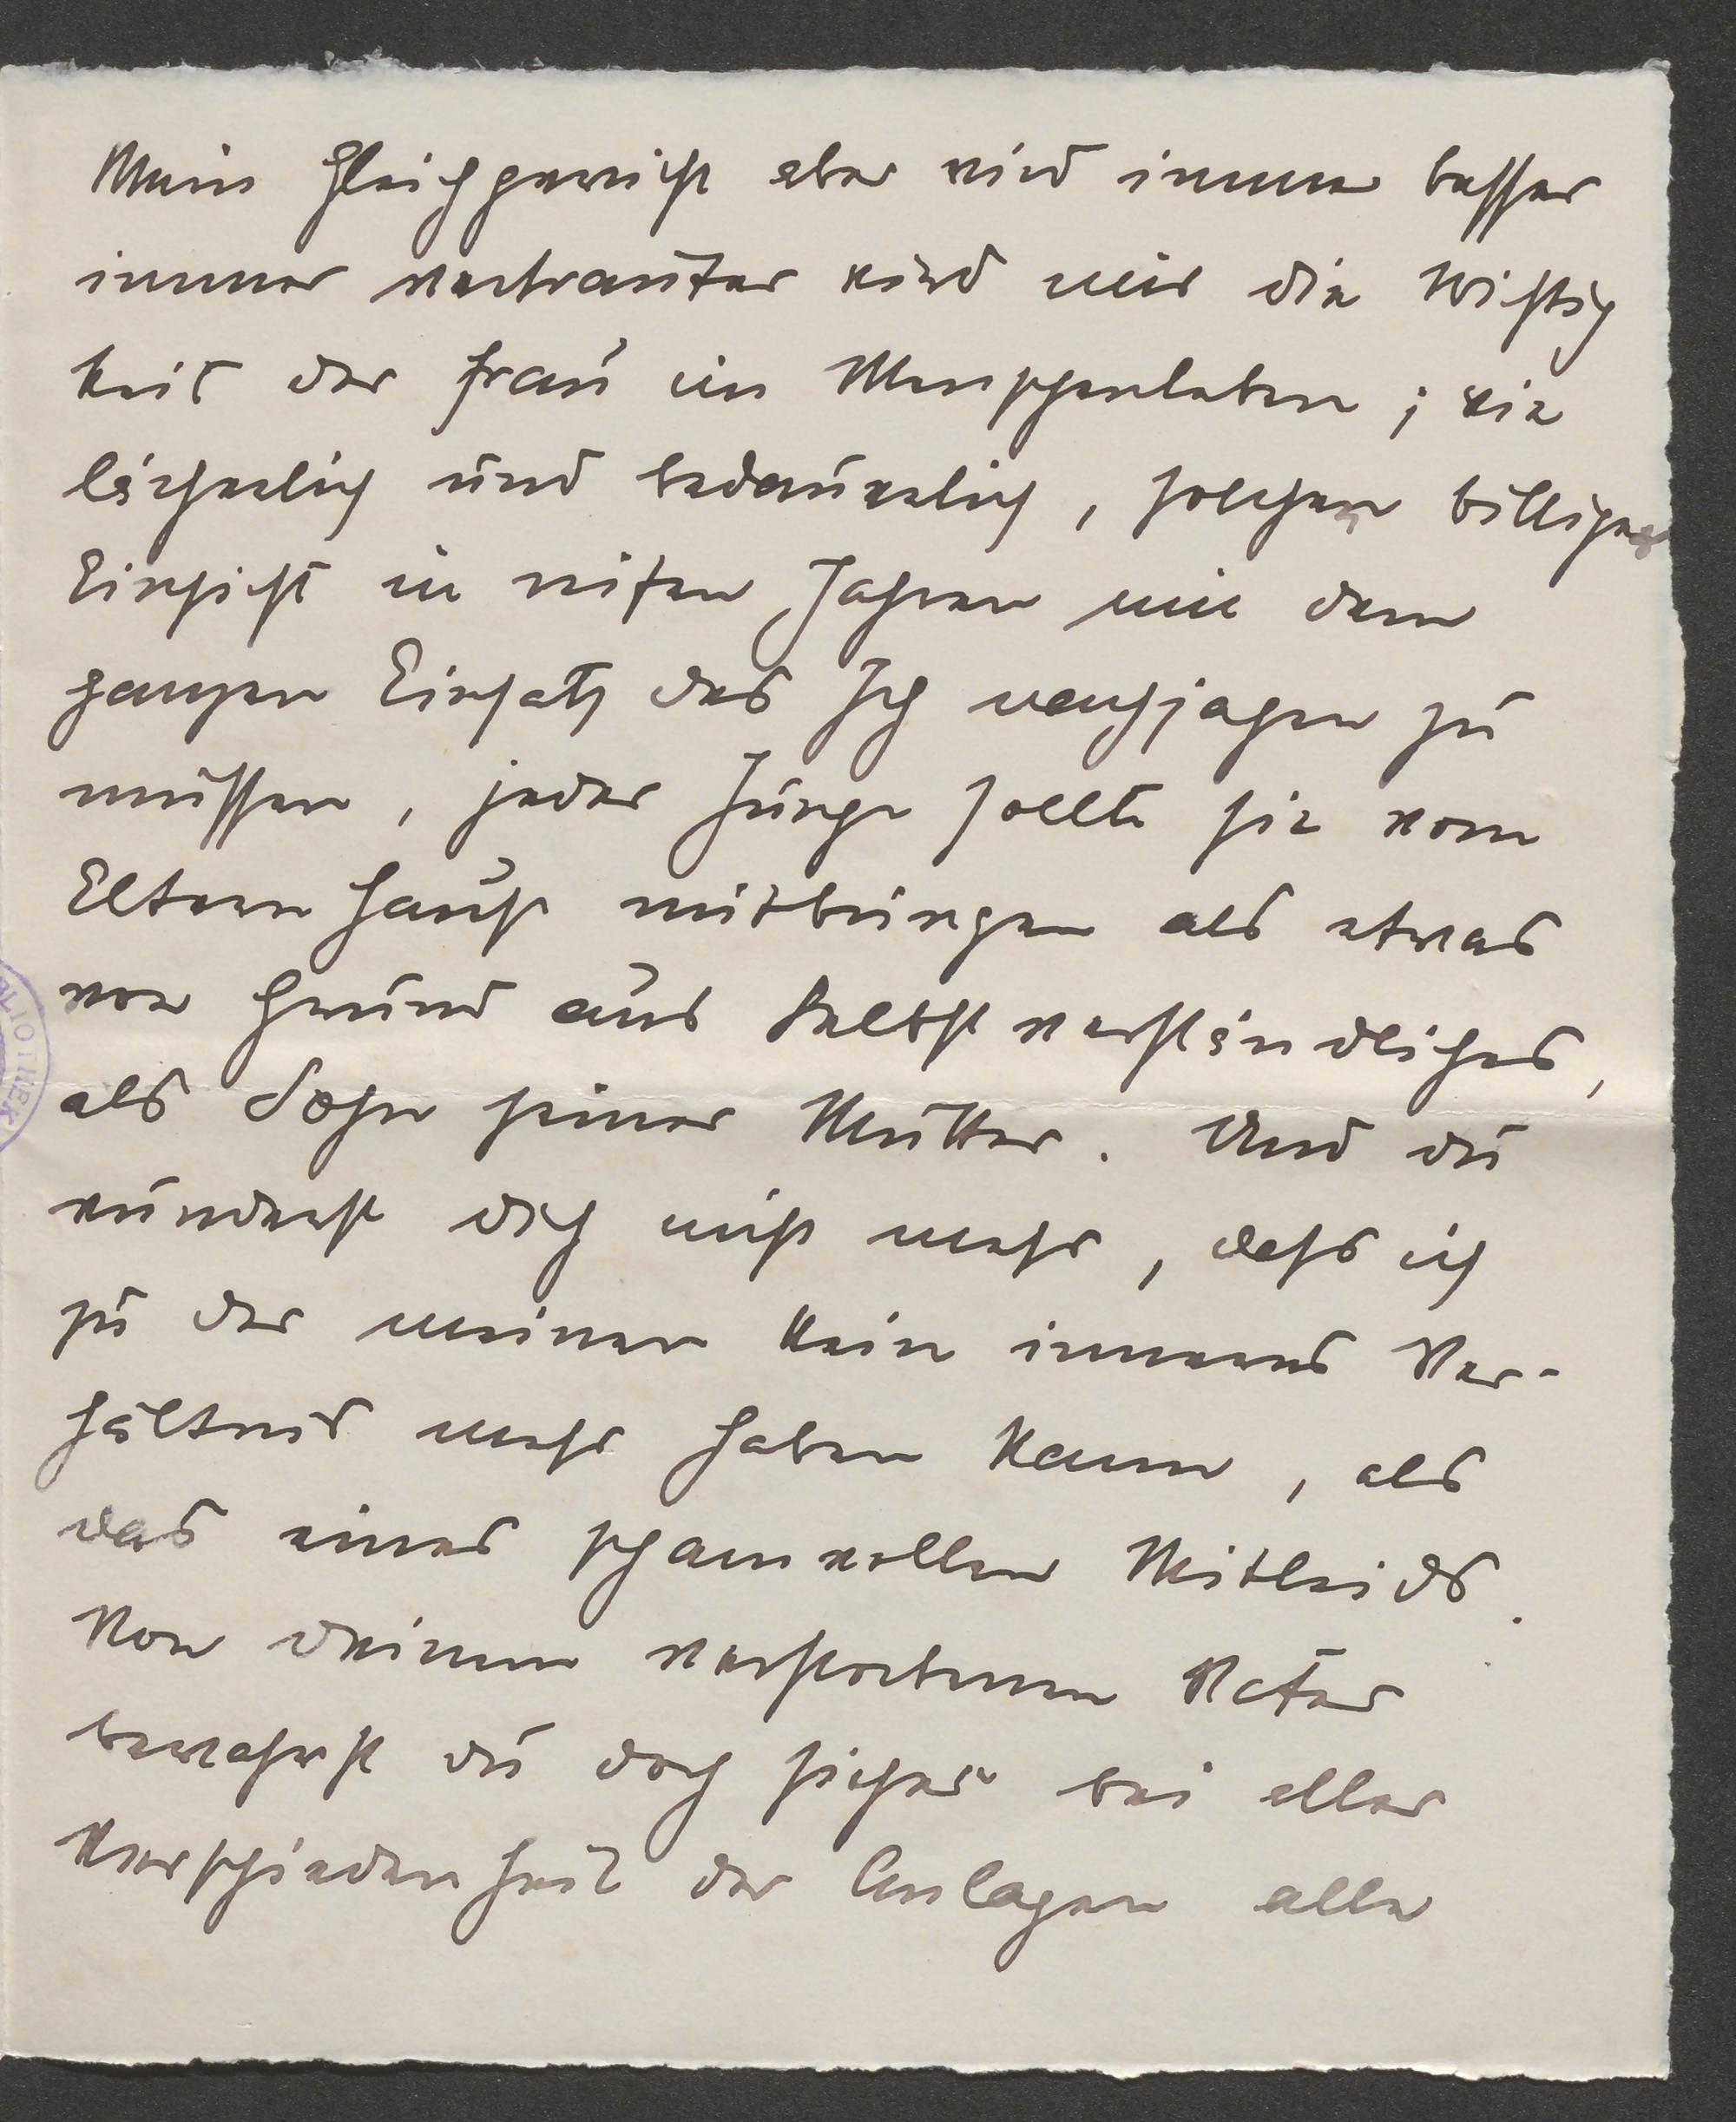 Mein Gleichgewicht aber wird immer besser
immer vertrauter wird mir die Wichtig
keit der Frau im Menschenleben; wie
lächerlich und bedauerlich, solcher billigen
Einsicht in reifen Jahren mit dem
ganzen Einsatz des Ich nachjagen zu
müssen, jeder Junge sollte sie vom
Elternhause mitbringen als etwas
von Grund aus Selbstverständliches,
als Sohn seiner Mutter. Und du
wunderst dich nicht mehr, dass ich
zu der meinen kein inneres Ver-
hältnis mehr haben kann, als
das eines schamvollen Mitleids.
Von deinem verstorbenen Vater
bewahrst du doch sicher bei aller
Verschiedenheit der Anlagen alle
OTHEK